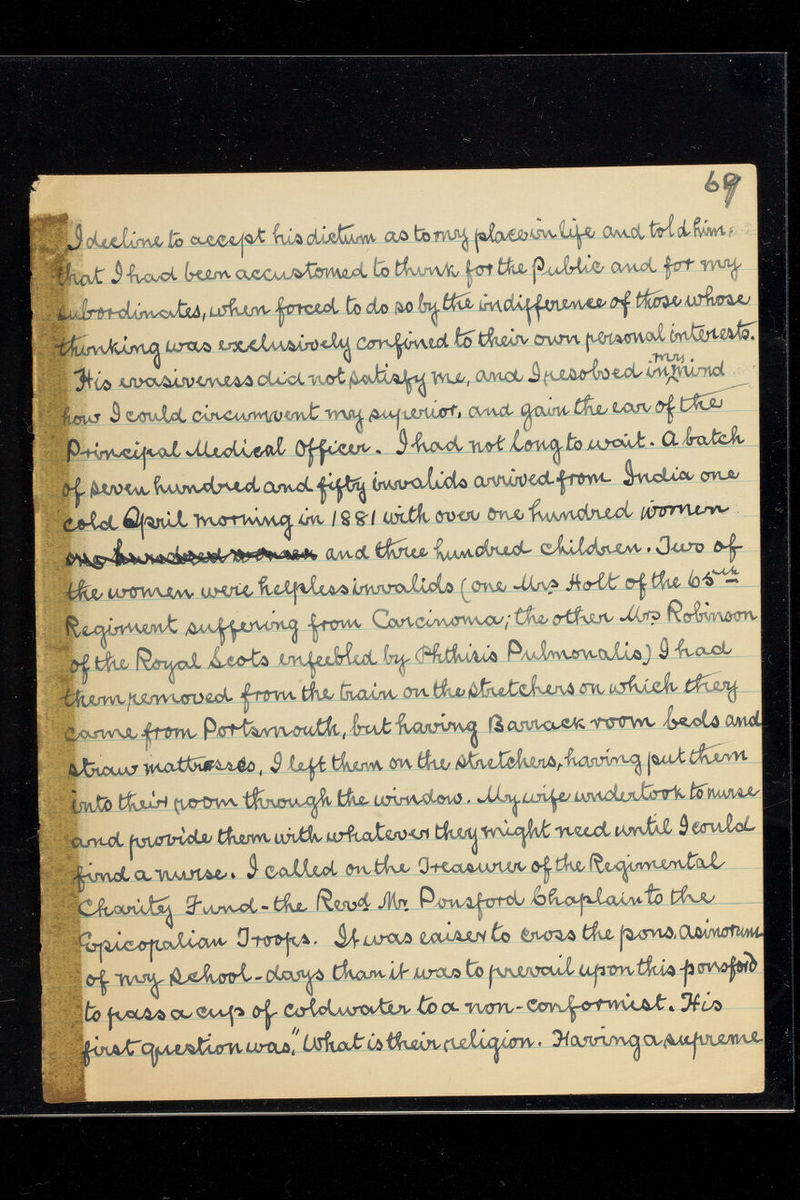 69
I decline to accept his dictum as to my place in life and told him,
that I had been accustomed to think for the Public and for my
subordinates, when forced to do so by the indifference of those whose
thinking was exclusively confined to their own personal interests.
His evasiveness did not satisfy me, and I resolved in my mind
how I could circumvent my superior, and gain the ear of the
Principal Medical Officer. I had not long to wait. A batch
of seven hundred and fifty invalids arrived from India one
cold April morning in 1881 with over one hundred women
one hundred women and three hundred children. Two of
the women were helpless invalids (one Mrs Holt of the 65th
Regiment suffering from Carcinoma; the other Mrs Robinson
of the Royal Scots enfeebled by Phthisis Pulmonalis) I had
them removed from the train on the stretchers on which they
came from Portsmouth, but having Barrack room beds and
straw mattresses, I left them on the stretchers, having put them
into their room through the window. My wife undertook to nurse
and provide them with whatever they might need until I could
find a nurse. I called on the Treasurer of the Regimental
Charity Fund - the Revd Mr. Ponsford Chaplain to the
Episcopalian Troops. It was eaiser to cross the pons, asinorum
of my school-days than it was to prevail upon this ponsford
to pass a cup of coldwater to a non-conformist. His
first question was," What is their religion. Having a supreme